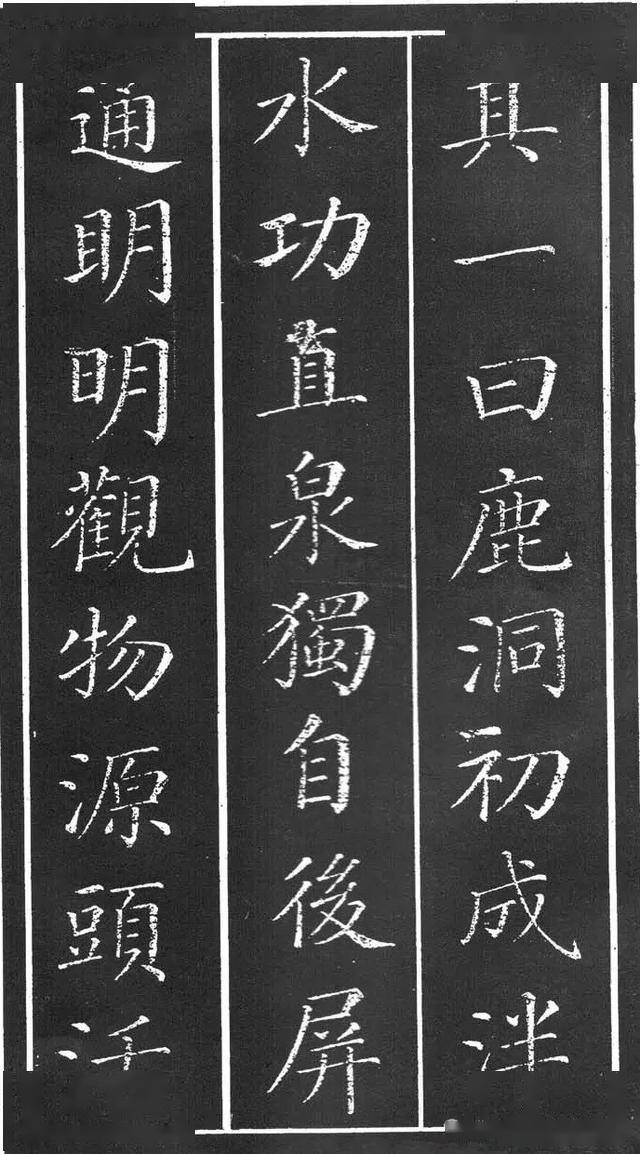 其一曰鹿洞初成泮
水功直泉獨自後屏
通明明觀物源頭活